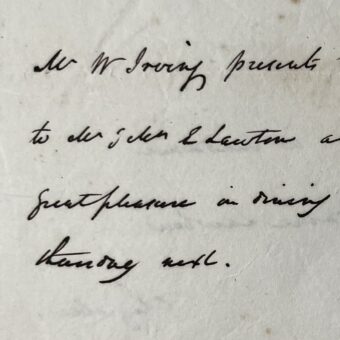 Mr W Irving presents
to Mr & Mrs E Lawton a
great pleasure in dining
thursday next.